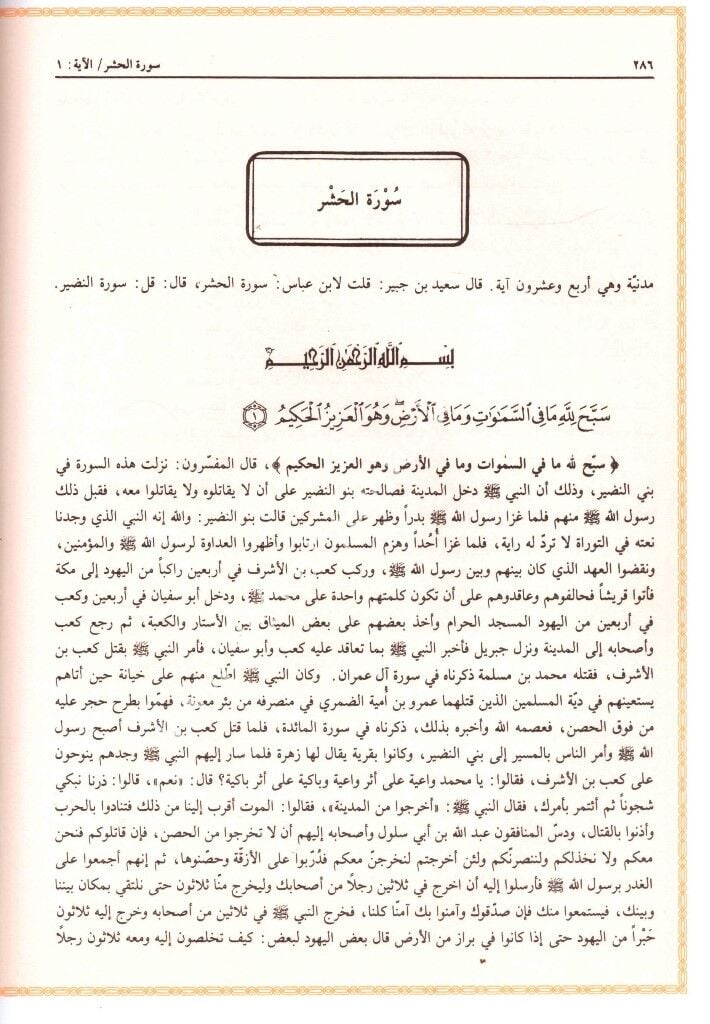 ٢٨٦
سورة الحشر/ الآية: ١
سُوْرَة الحَشْر
مدنيّة وهي أربع وعشرون آية. قال سعيد بن جبير: قلت لابن عباس: سورة الحشر، قال: قل: سورة النضير.
بِسْمِ اللَّهِ الرَّحْمَٰنِ الرَّحِيمِ
سَبَّحَ لِلَّهِ مَا فِي السَّمَٰوَٰتِ وَمَا فِي الْأَرْضِ ۖ وَهُوَ الْعَزِيزُ الْحَكِيمُ ١
﴿ سبّح لله ما في السموات وما في الأرض وهو العزيز الحكيم ﴾، قال المفسّرون: نزلت هذه السورة في
بني النضير، وذلك أن النبي ﷺ دخل المدينة فصالحته بنو النضير على أن لا يقاتلوه ولا يقاتلوا معه، فقبل ذلك
رسول الله ﷺ منهم فلما غزا رسول الله ﷺ بدراً وظهر على المشركين قالت بنو النضير: والله إنه النبي الذي وجدنا
نعته في التوراة لا تردّ له راية، فلما غزا أُحُداً وهزم المسلمون ارتابوا وأظهروا العداوة لرسول الله ﷺ والمؤمنين،
ونقضوا العهد الذي كان بينهم وبين رسول الله ﷺ، وركب كعب بن الأشرف في أربعين راكباً من اليهود إلى مكة
فأتوا قريشاً فحالفوهم وعاقدوهم على أن تكون كلمتهم واحدة على محمد ﷺ، ودخل أبو سفيان في أربعين وكعب
في أربعين من اليهود المسجد الحرام وأخذ بعضهم على بعض الميثاق بين الأستار والكعبة، ثم رجع كعب
وأصحابه إلى المدينة ونزل جبريل فأخبر النبي ﷺ بما تعاقد عليه كعب وأبو سفيان، فأمر النبي ﷺ بقتل كعب بن
الأشرف، فقتله محمد بن مسلمة ذكرناه في سورة آل عمران. وكان النبي ﷺ اطّلع منهم على خيانة حين أتاهم
يستعينهم في ديّة المسلمين الذين قتلهما عمرو بن أُمية الضمري في منصرفه من بئر معونة، فهمّوا بطرح حجر عليه
من فوق الحصن، فعصمه الله وأخبره بذلك، ذكرناه في سورة المائدة، فلما قتل كعب بن الأشرف أصبح رسول
الله ﷺ وأمر الناس بالمسير إلى بني النضير، وكانوا بقرية يقال لها زهرة فلما سار إليهم النبي ﷺ وجدهم ينوحون
على كعب بن الأشرف، فقالوا: يا محمد واعية على أثر واعية وباكية على أثر باكية؟ قال: «نعم»، قالوا: ذرنا نبكي
شجوناً ثم أئتمر بأمرك، فقال النبي ﷺ: «أخرجوا من المدينة»، فقالوا: الموت أقرب إلينا من ذلك فتنادوا بالحرب
وأذنوا بالقتال، ودسّ المنافقون عبد الله بن أبي سلول وأصحابه إليهم أن لا تخرجوا من الحصن، فإن قاتلوكم فنحن
معكم ولا نخذلكم ولننصرنّكم ولئن أخرجتم لنخرجنّ معكم فدُرّبوا على الأزقّة وحصّنوها، ثم إنهم أجمعوا على
الغدر برسول الله ﷺ فأرسلوا إليه أن اخرج في ثلاثين رجلاً من أصحابك وليخرج منّا ثلاثون حتى نلتقي بمكان بيننا
وبينك، فيستمعوا منك فإن صدّقوك وآمنوا بك آمنّا كلنا، فخرج النبي ﷺ في ثلاثين من أصحابه وخرج إليه ثلاثون
حَبْراً من اليهود حتى إذا كانوا في براز من الأرض قال بعض اليهود لبعض: كيف تخلصون إليه ومعه ثلاثون رجلاً